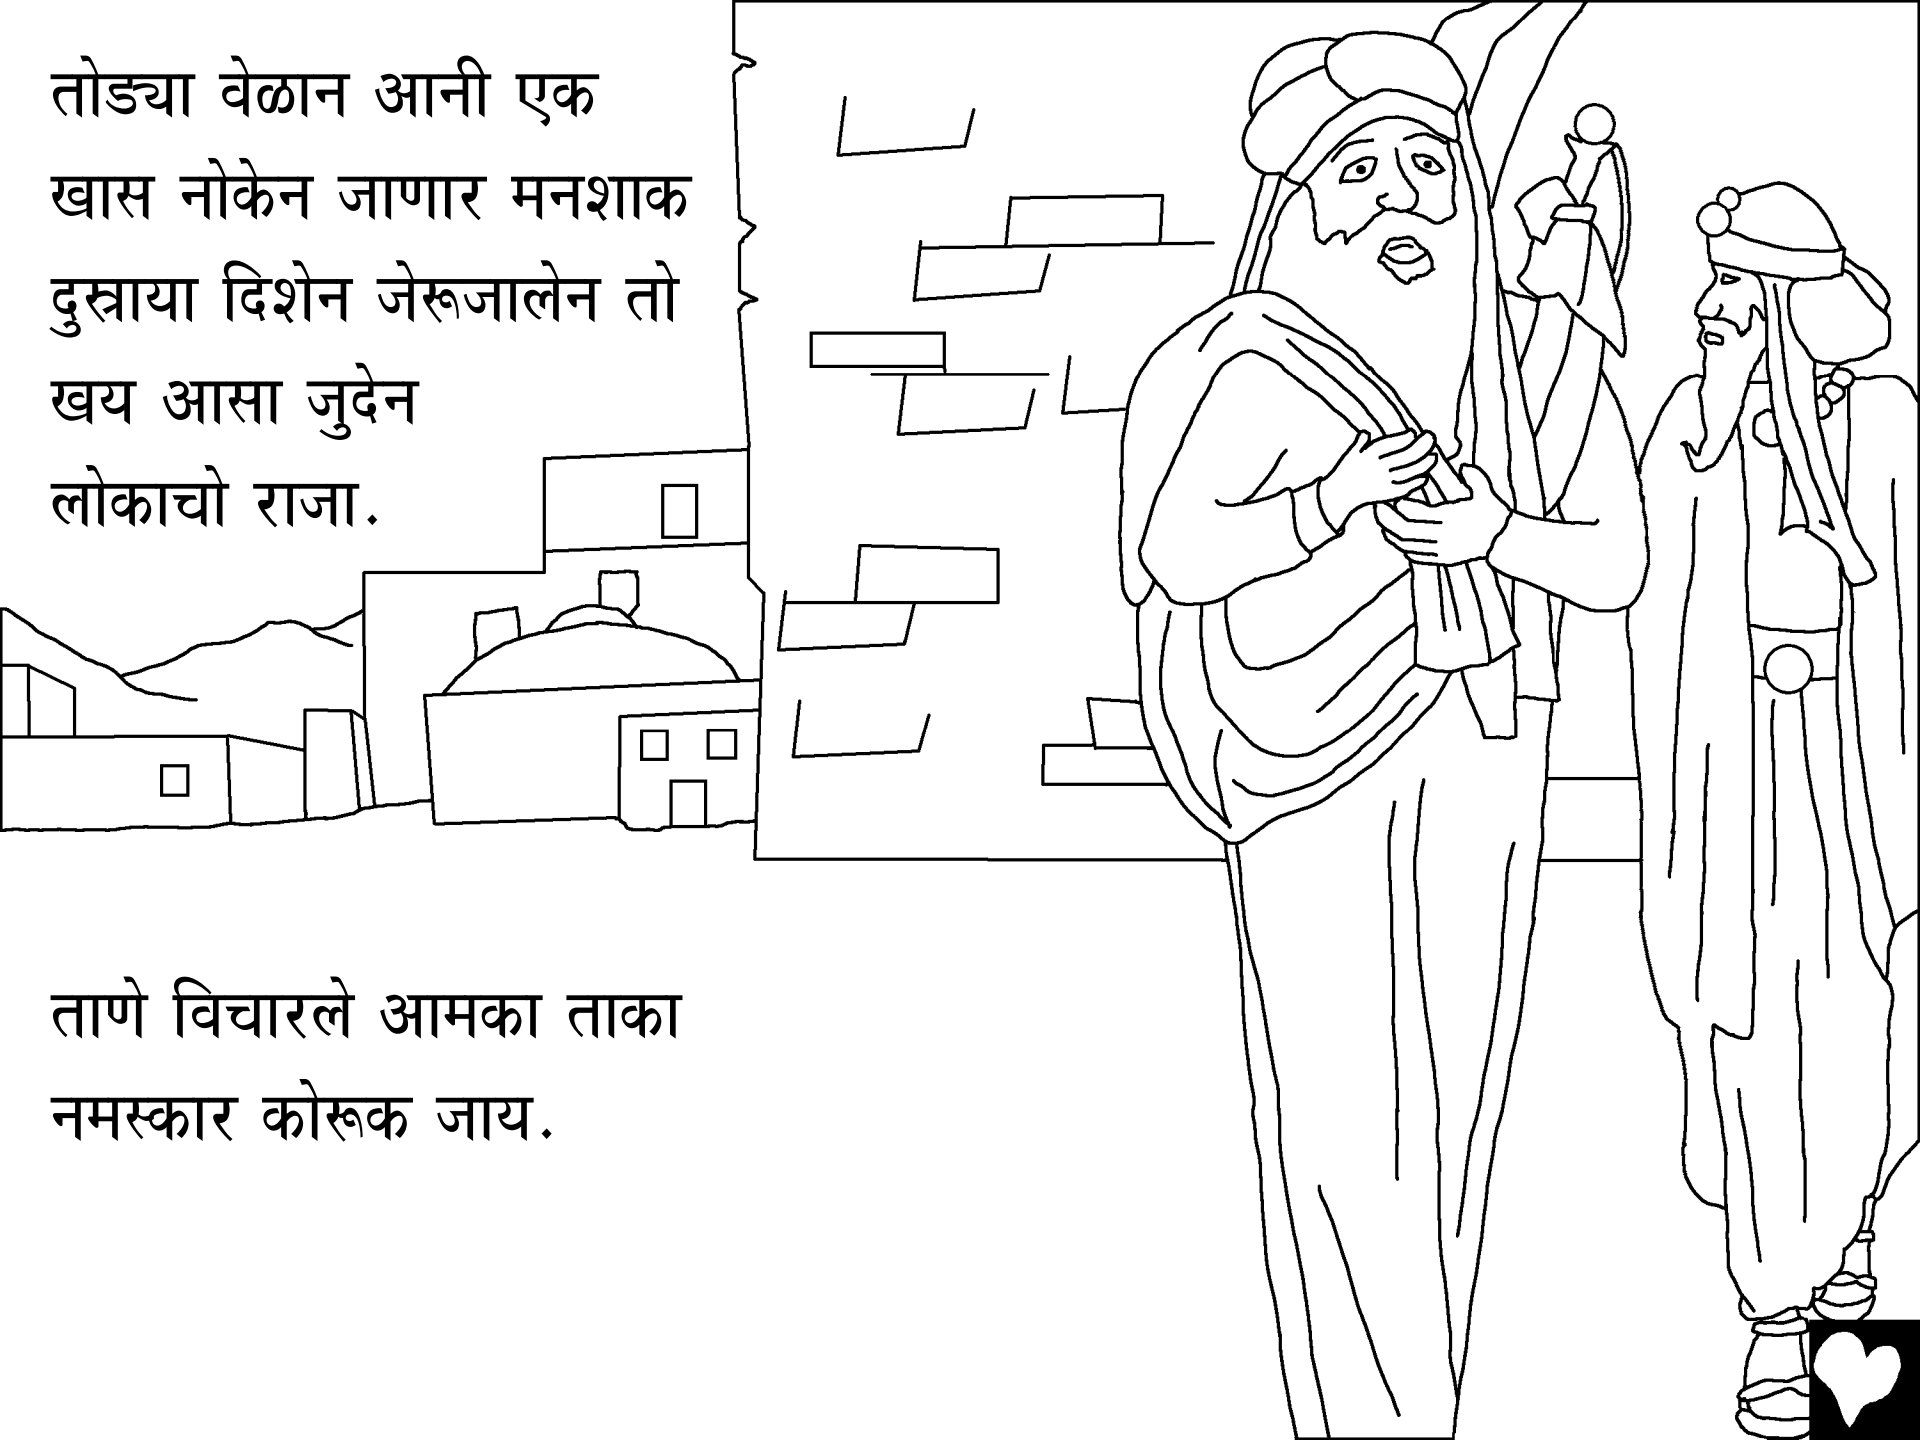 तोड्या वेळान आनी एक
खास नोकेन जाणार मनशाक
दुस्राया दिशेन जेरूजालेन तो
खय आसा जुदेन
लोकाचो राजा.
ताणे विचारले आमका ताका
नमस्कार कोरूक जाय.